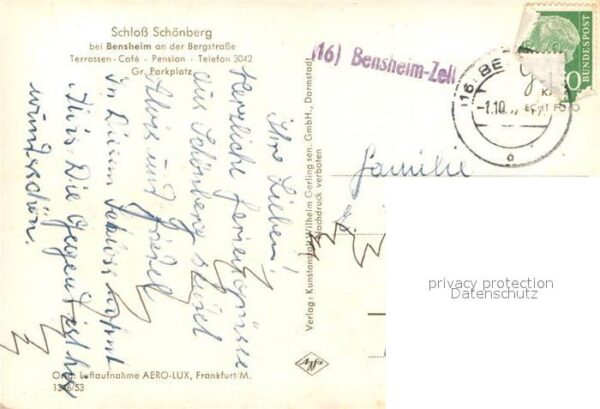 Schloß Schönberg
bei Bensheim an der Bergstraße
Terrassen - Café - Pension - Telefon 3042
Gr. Parkplatz
(16) Bensheim-Zell
DEUTSCHE BUNDESPOST
(16) BE
-1.10.
Ihre Lieben!
Herzliche Feriengrüsse
aus Schönberg
Alois und
In diesem Schloss wohnt
Die Gegend ist hier
wunderschön.
Familie
Verlag: Kunstanstalt Wilhelm Gerling sen. GmbH., Darmstadt
Nachdruck verboten
Orig. Luftaufnahme AERO-LUX, Frankfurt/M.
privacy protection
Datenschutz